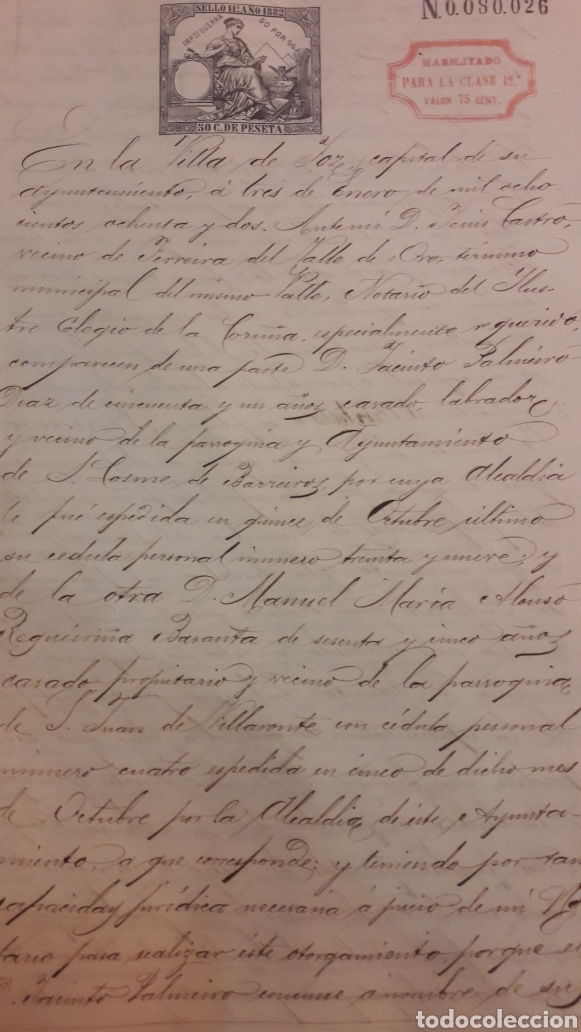 SELLO 11º AÑO 1882
IMPTO GUERRA 50 POR 100
50 C. DE PESETA
N.0.080.026
HABILITADO
PARA LA CLASE 12.ª
VALOR 75 CENT.
En la Villa de Foz, capital de su
Ayuntamiento, á tres de Enero de mil ocho
cientos ochenta y dos. Antemi D. Castro,
vecino de Ferreira del Valle de Oro término
municipal del mismo Valle, Notario del Ilus-
tre Colegio de la Coruña, especialmente requerido,
comparecen de una parte D. Jacinto Palmeiro
Diaz de cincuenta y un años, casado, labrador
y vecino de la parroquia y Ayuntamiento
de S. Cosme de Barreiros, por cuya Alcaldía
le fué espedida en quince de Octubre último
su cedula personal número treinta y nueve; y
de la otra D. Manuel Maria Alonso
Basanta de sesenta y cinco años
casado propietario y vecino de la parroquia
de S. Juan de Villaronte con cédula personal
número cuatro espedida en cinco de dicho mes
de Octubre por la Alcaldía de éste Ayunta-
miento, a que corresponde; y teniendo por tan
capacidad jurídica necesaria á juicio de mi No
tario para realizar éste otorgamiento, porque el
D. Jacinto Palmeiro a nombre de su
todocoleccion